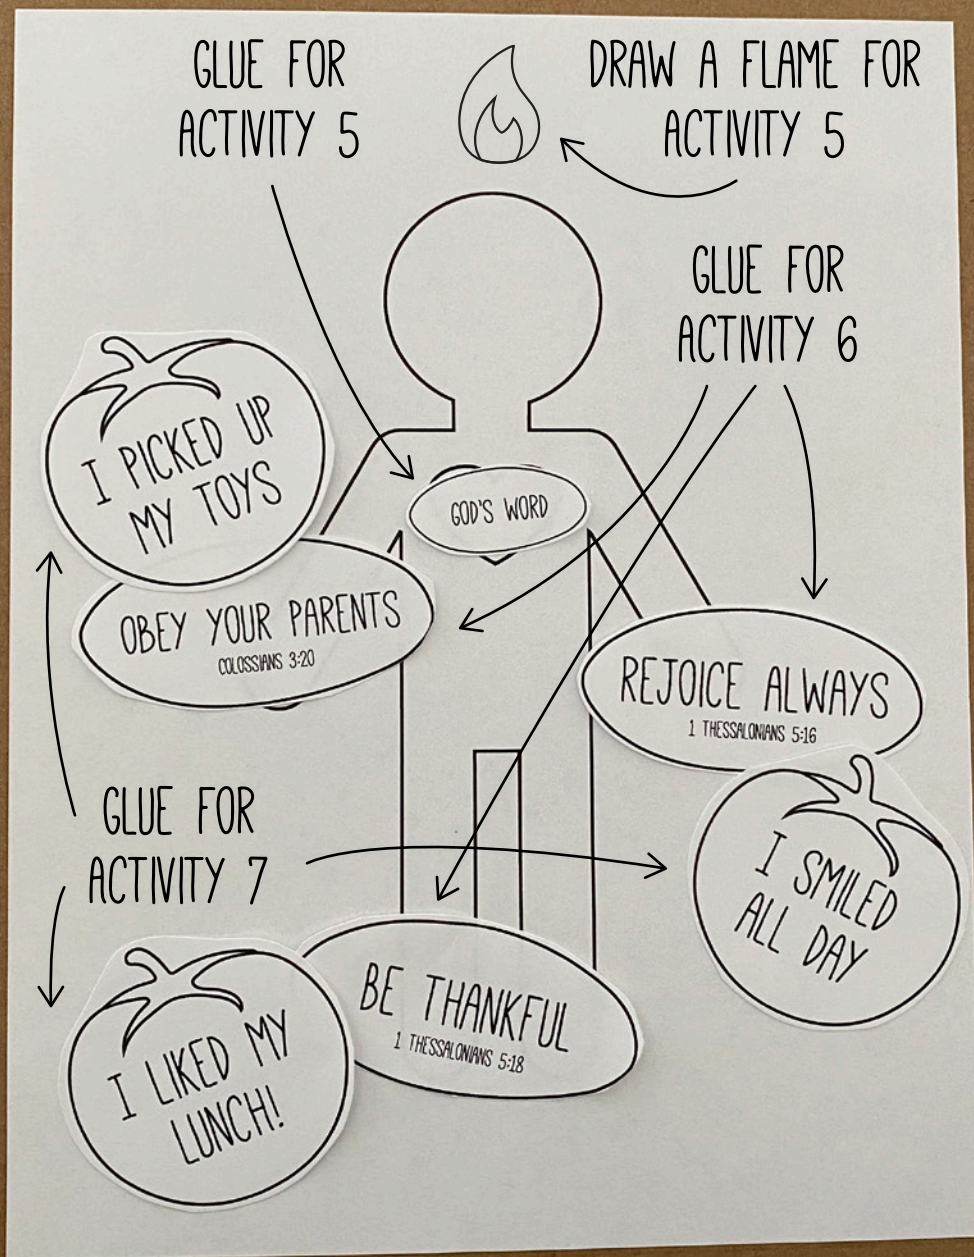 GLUE FOR
ACTIVITY 5
DRAW A FLAME FOR
ACTIVITY 5
GLUE FOR
ACTIVITY 6
I PICKED UP
MY TOYS
GOD'S WORD
OBEY YOUR PARENTS
COLOSSIANS 3:20
REJOICE ALWAYS
1 THESSALONIANS 5:16
GLUE FOR
ACTIVITY 7
I SMILED
ALL DAY
BE THANKFUL
1 THESSALONIANS 5:18
I LIKED MY
LUNCH!